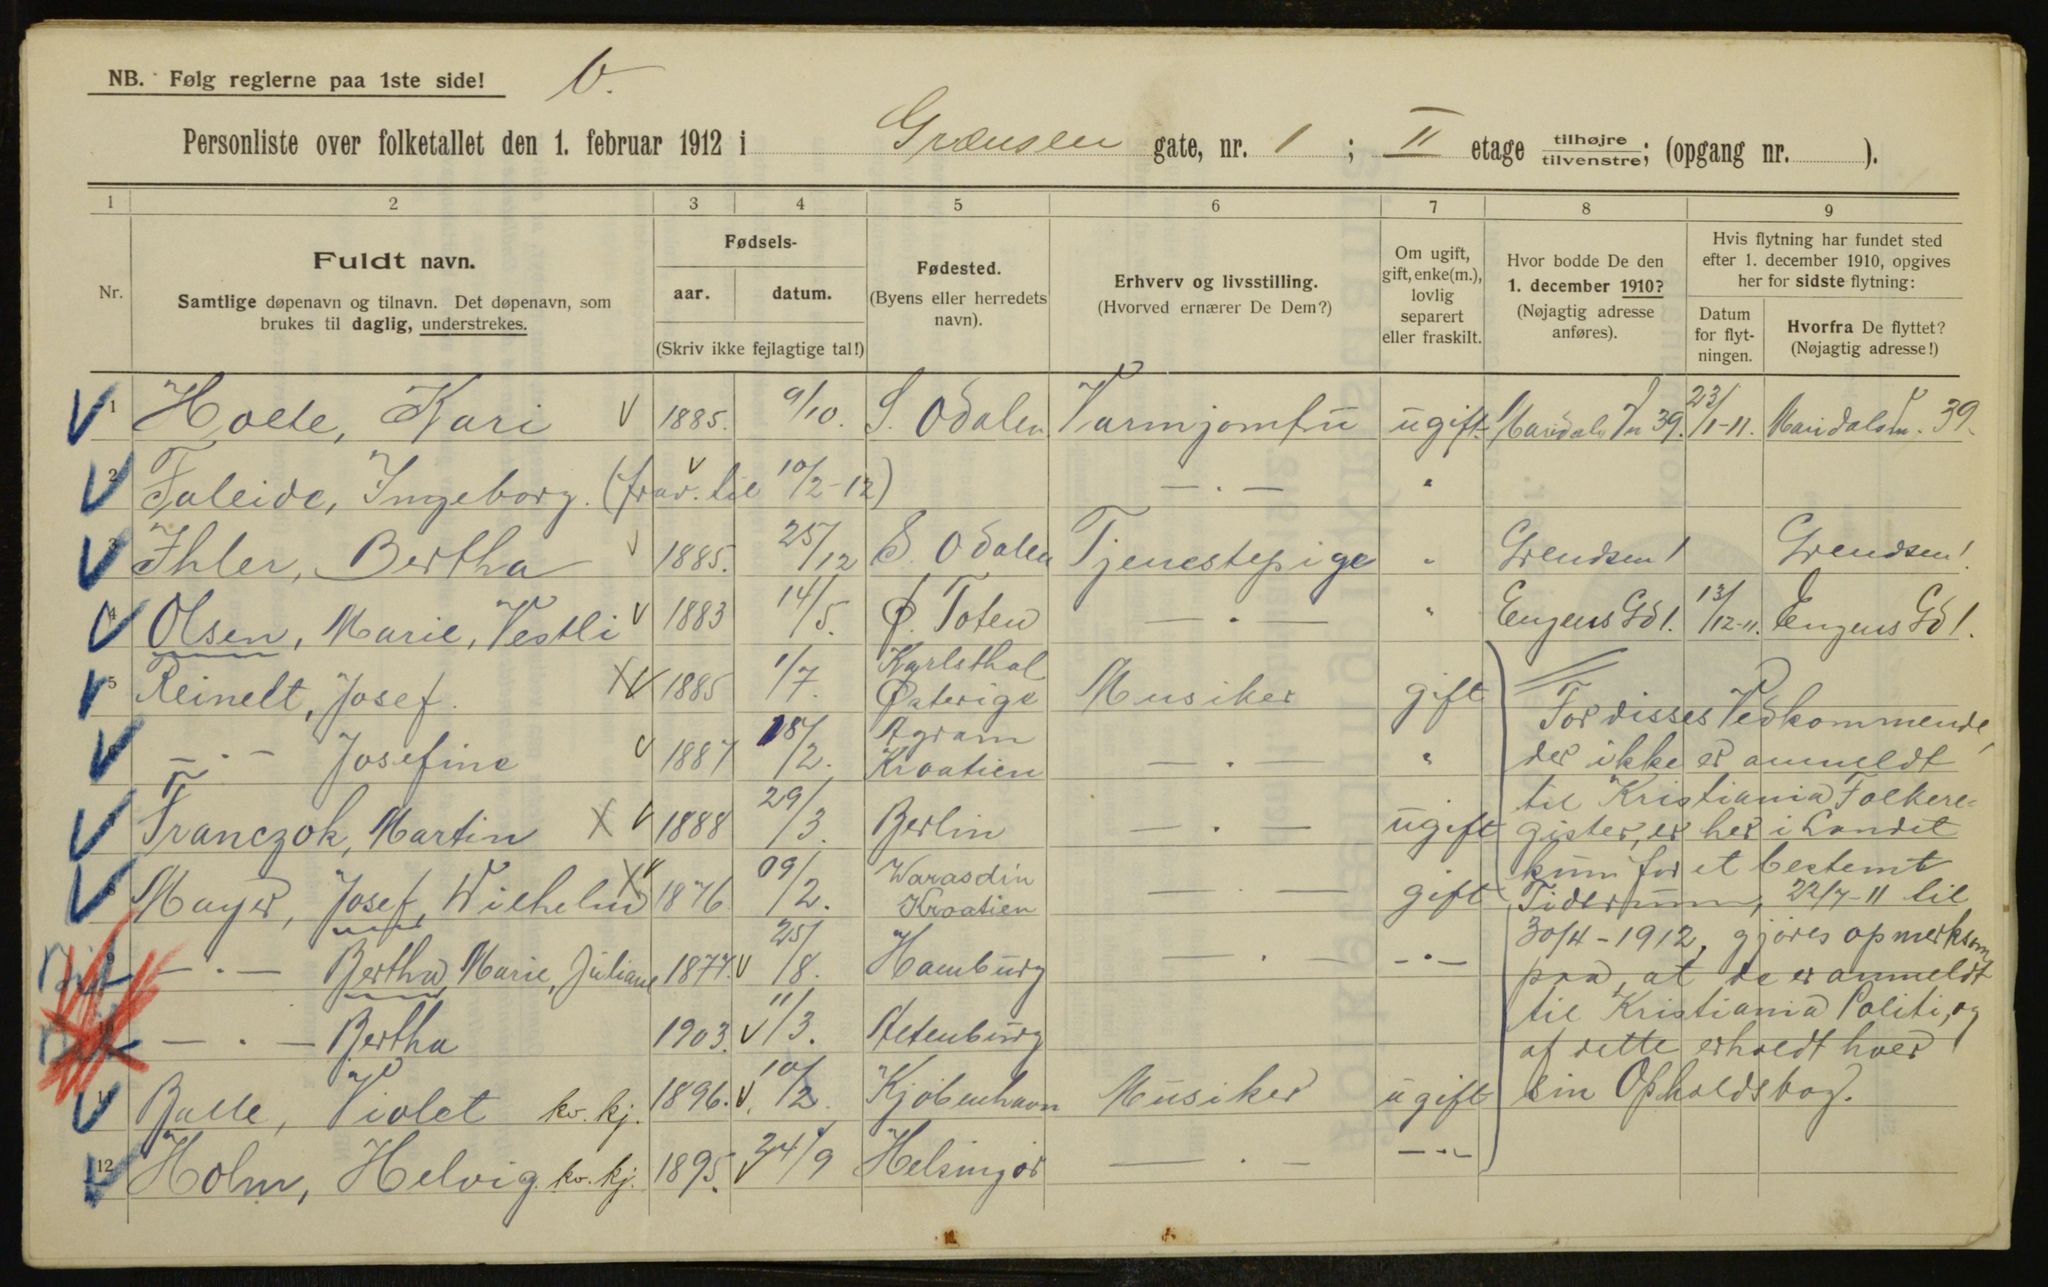 NB. Følg reglerne paa 1ste side!
Personliste over folketallet den 1. februar 1912 i Grænsen gate, nr. 1; II etage tilhøjre tilvenstre; (opgang nr. ).
1 2 3 4 5 6 7 8 9
Nr.
Fuldt navn.
Samtlige døpenavn og tilnavn. Det døpenavn, som
brukes til daglig, understrekes.
Fødsels-
aar. datum.
(Skriv ikke fejlagtige tal!)
Fødested.
(Byens eller herredets
navn).
Erhverv og livsstilling.
(Hvorved ernærer De Dem?)
Om ugift,
gift, enke(m.),
lovlig
separert
eller fraskilt.
Hvor bodde De den
1. december 1910?
(Nøjagtig adresse
anføres).
Hvis flytning har fundet sted
efter 1. december 1910, opgives
her for sidste flytning:
Datum
for flyt-
ningen.
Hvorfra De flyttet?
(Nøjagtig adresse!)
1 Holte, Kari 1885. 9/10. S. Odalen Varmjomfru ugift. Maridals Vn 39. 23/1-11. Maridalsvn. 39.
2 Faleide, Ingeborg. (frav. til 10/2-12) — . — "
3 Ihler, Bertha 1885. 25/12 S. Odalen Tjenestepige " Grendsen 1 Grendsen 1
4 Olsen, Marie, Vestli 1883 14/5. Ø. Toten — . — " Engens Gd 1. 13/12-11. Engens Gd 1.
5 Reinelt, Josef. 1885 1/7. Karlsthal Østerige Musiker gift
6 — . — Josefine 1887 18/2. Agram Kroatien — . — "
7 Franczok, Martin 1888 29/3. Berlin — . — ugift
8 Mayer, Josef, Wilhelm 1876 09/2. Warasdin Kroatien — . — gift
9 — . — Bertha, Marie, Juliane 1877. 25/8. Hamburg — . — — . —
10 — . — Bertha 1903. 11/3. Altenburg
11 Balle, Violet kv. kj. 1896. 10/2. Kjøbenhavn Musiker ugift
12 Holm, Helvig. kv. kj. 1895. 24/9 Helsingør — . — — . —
For disses Vedkommende,
der ikke er anmeldt
til Kristiania Folkere=
gister, er her i Landet
kun for et bestemt
Tidsrum, 22/7-11 til
30/4-1912, gjøres opmerksom
paa, at de er anmeldt
til Kristiania Politi, og
af dette erholdt hver
sin Opholdsbog.